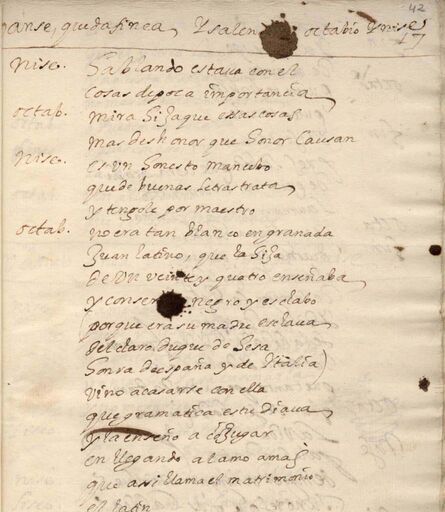 42
17
anse, queda finea, Y salen octabio Y nise
nise. hablando estava con el
cosas de poca importancia
octab. mira hija que essas cosas
mas deshonor que honor causan
nise. es un honesto mancebo
que de buenas letras trata
y tengole por maestro
octab. no era tan blanco en granada
Juan latino, que la hija
de un veinte y quatro enseñaba
y con ser negro y esclabo
porque era su madre esclava
del claro duque de sesa
honra de españa y de italia)
vino a casarse con ella
que gramatica estudiava
y la enseño a conjugar
en llegando al amo amas
que assi llama el matrimonio
el latin